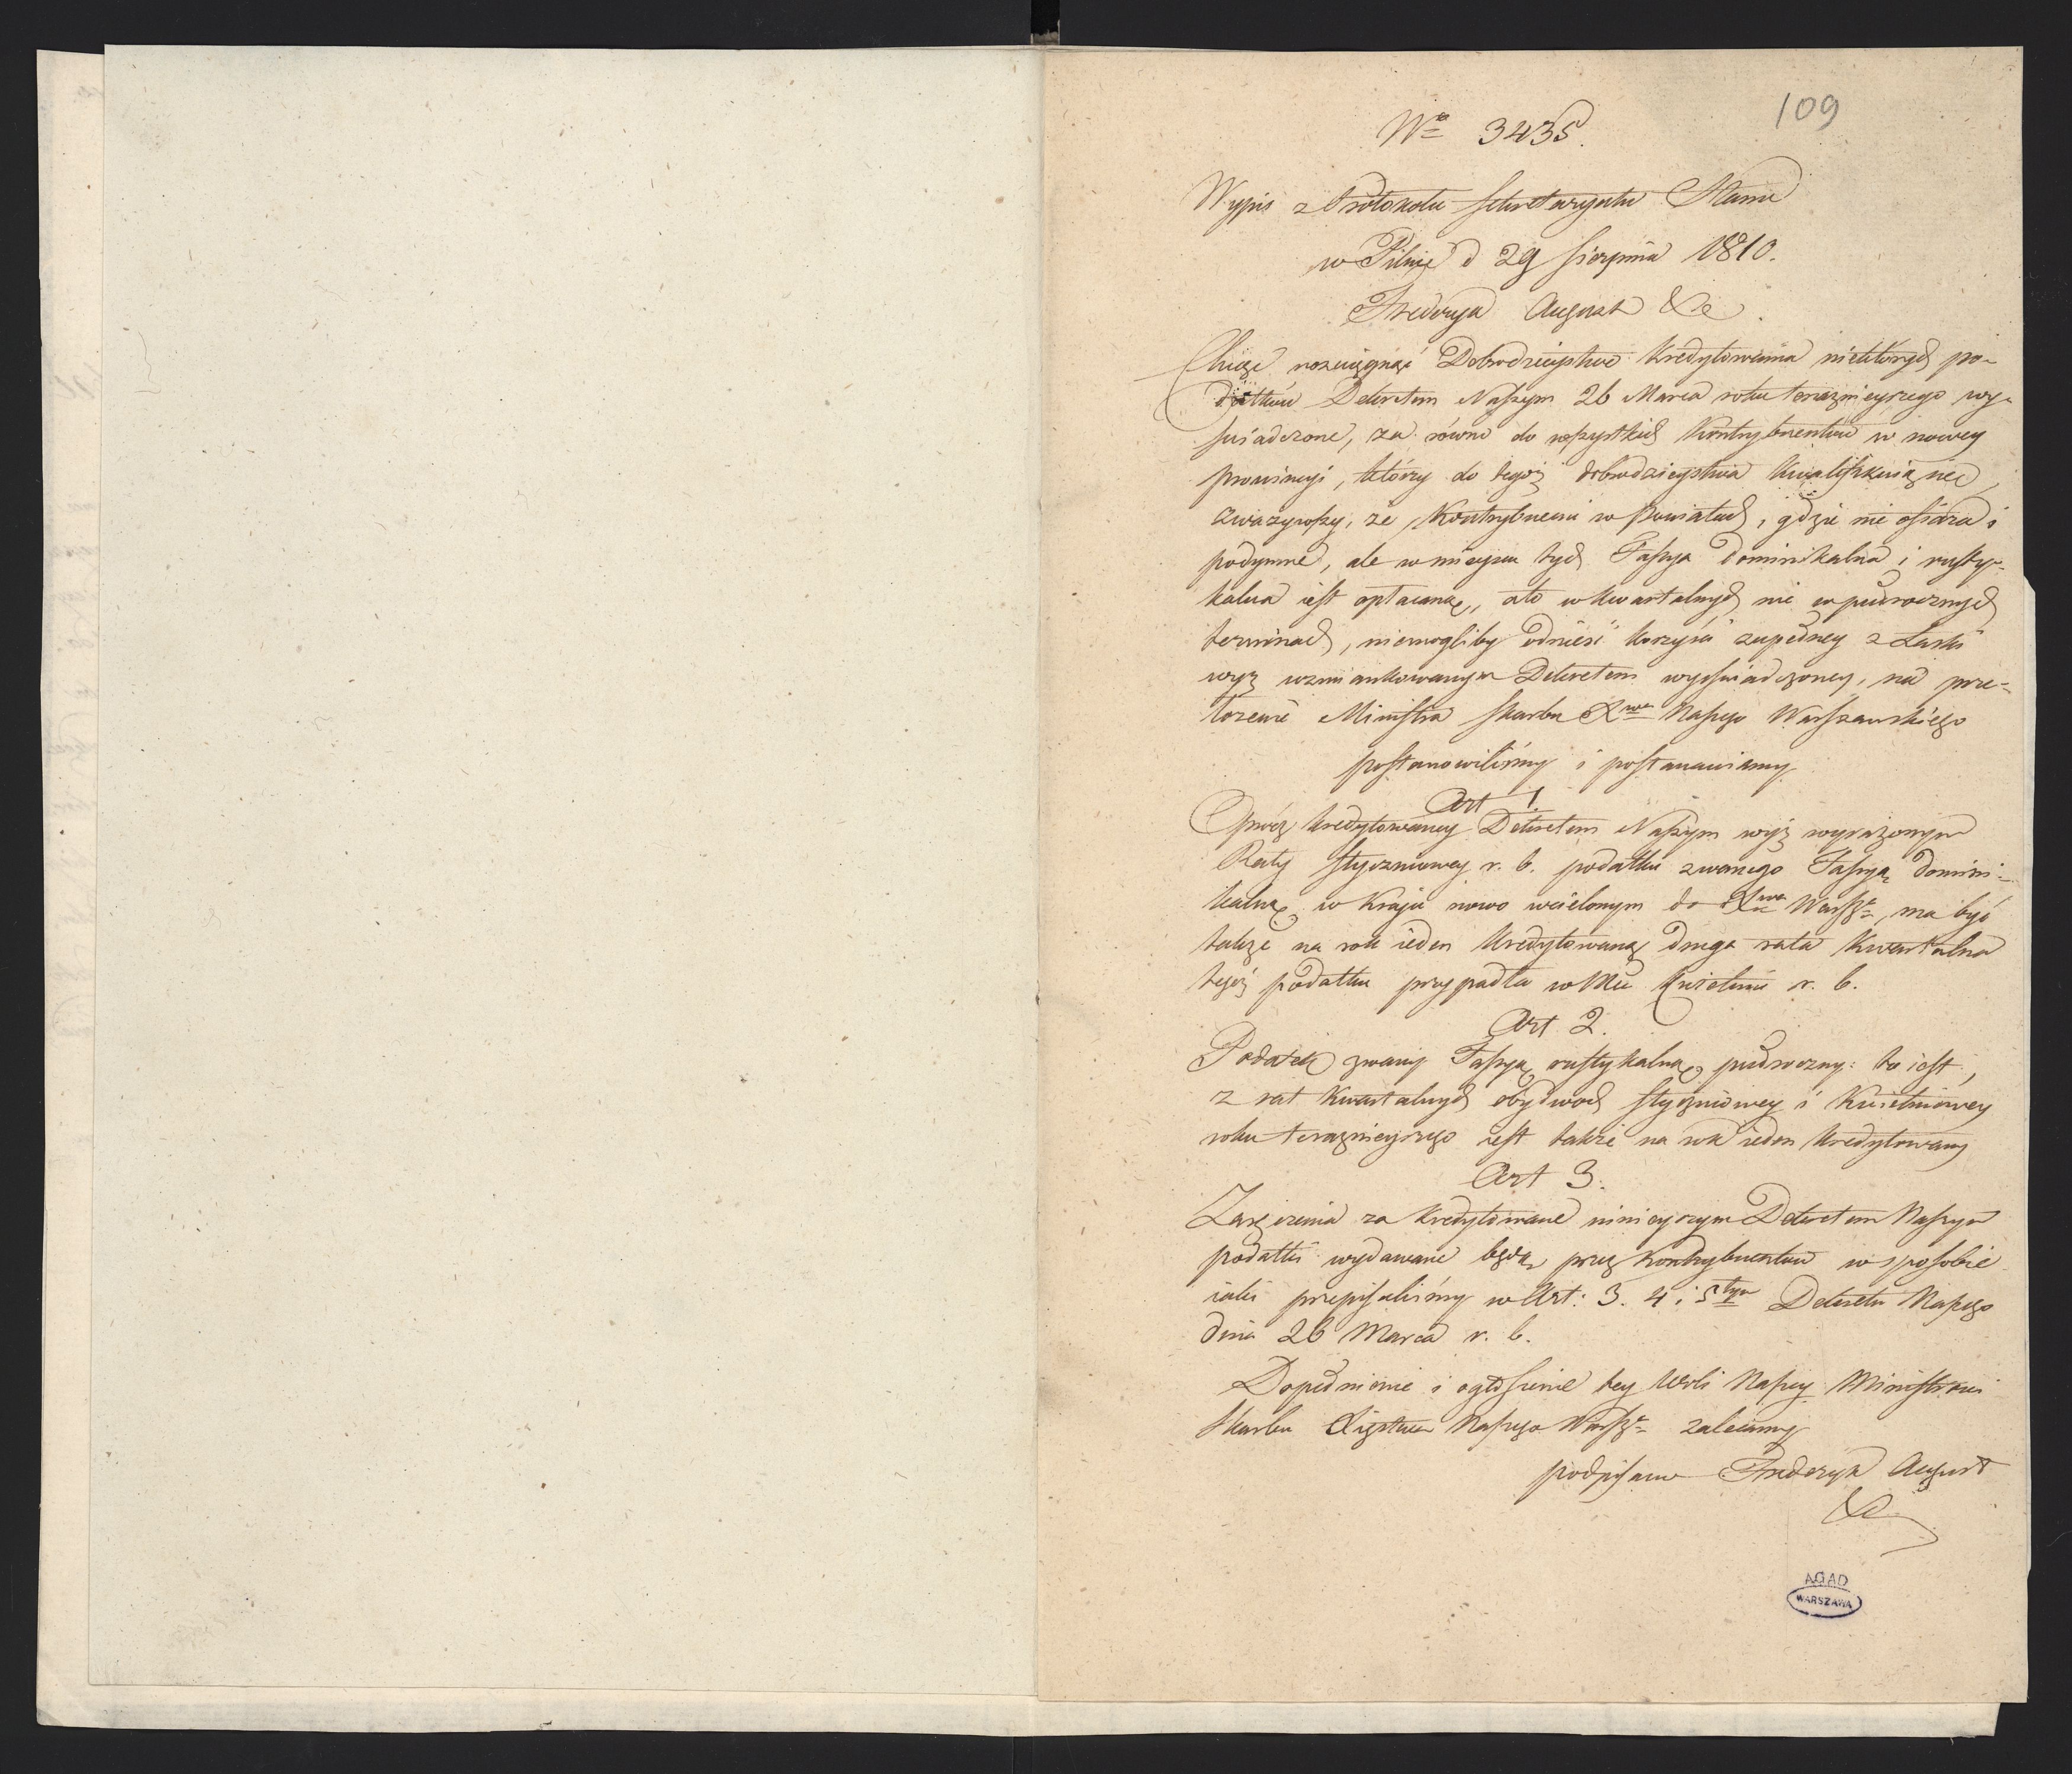 109
Nro 3435.
Wypis z Protokołu Sekretaryatu Stanu
w Pilnic d 29 Sierpnia 1810.
Frederyk August &c
Chcąc rozciągnąć Dobrodzieystwo kredytowania niektórych po-
datków Dekretem Naszym 26 Marca roku teraznieyszego wy-
świadczone, za równo do wszystkich kontrybuentów w nowey
prowincyi, którzy do tegoż dobrodzieystwa kwalifikuią się
zważywszy, że kontrybuenci w powiatach, gdzie nie ofiara i
podymne, ale w mieyscu tych Fassya dominikalna i rusty-
kalna iest opłacaną, a to w kwartalnych nie w półrocznych
terminach, niemogliby odnieść korzyści zupełney z Łaski
wyż wzmiankowanym Dekretem wyświadczoney, na prze-
łożenie Ministra Skarbu Xwa Naszego Warszawskiego
postanowiliśmy i postanawiamy
Art 1.
Oprócz kredytowaney Dekretem Naszym wyż wyrażonym
Raty styczniowey r. b. podatku zwanego Fassyą domini-
kalną w kraju nowo wcielonym do Xwa Warszo, ma być
także na rok ieden kredytowaną druga rata kwartalna
tegoż podatku przypadła w Mcu Kwietniu r. b.
Art 2.
Podatek zwany Fassyą rustykalną, półroczny: to iest,
z rat kwartalnych obydwoch styczniowey i Kwietniowey
roku teraznieyszego iest także na rok ieden kredytowany
Art 3.
Zaręczenia za kredytowane ninieyszym Dekretem Naszym
podatki wydawane będą przez kontrybuentów w sposobie
iaki przepisaliśmy w Art: 3. 4 i 5tym Dekretu Naszego
dnia 26 Marca r. b.
Dopełnienie i ogłoszenie tey Woli Naszey Ministrowi
Skarbu Xięstwa Naszego Warszo zalecamy
podpisano Frederyk August
&c
AGAD
WARSZAWA